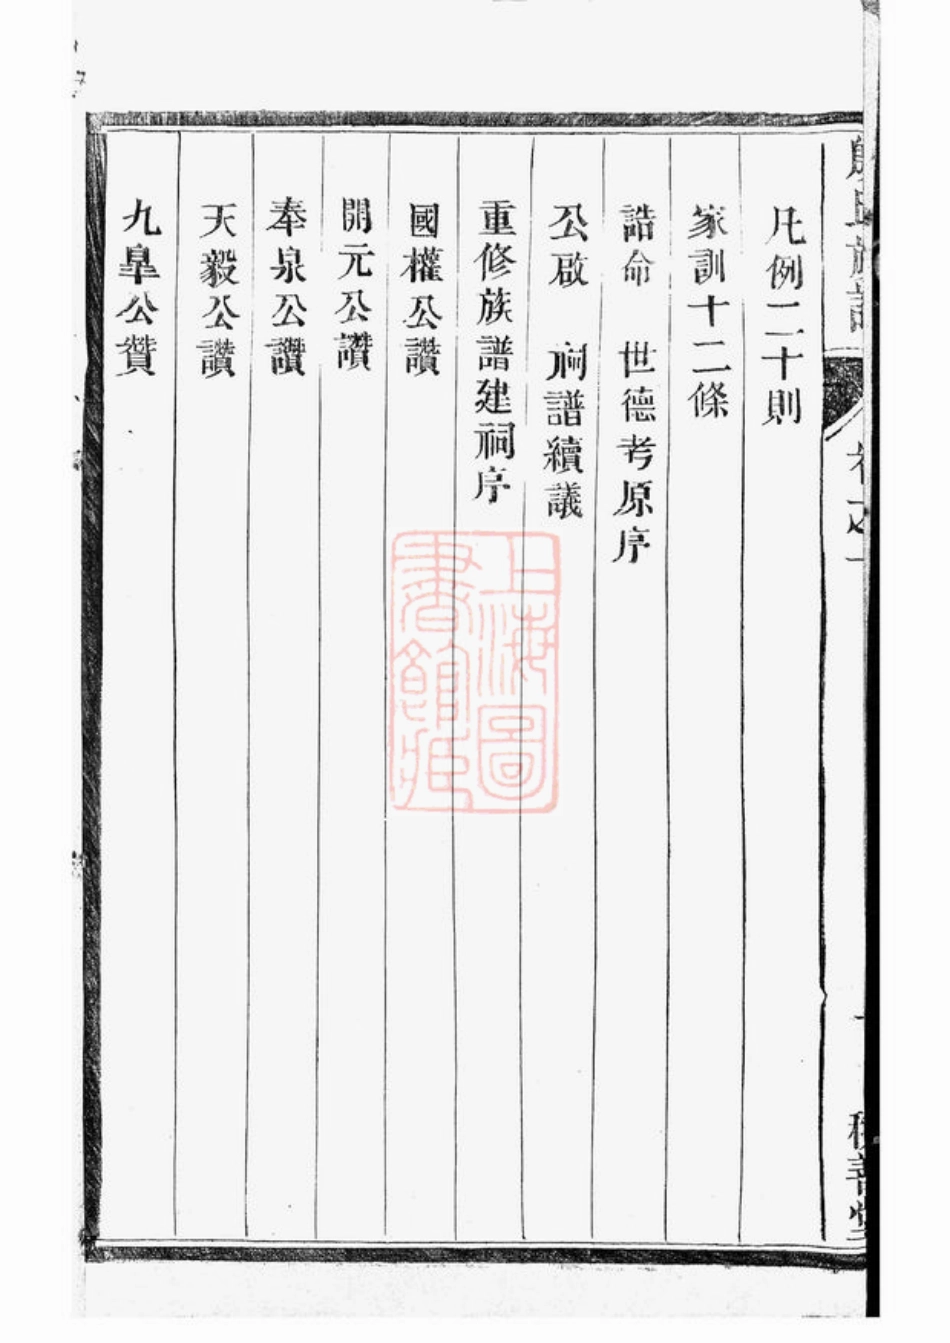 凡例二十則
家訓十二條
誥命　世德考原序
公啟　祠譜續議
重修族譜建祠序
國權公讚
開元公讚
奉泉公讚
天毅公讚
九臯公贊
上海圖
書館藏